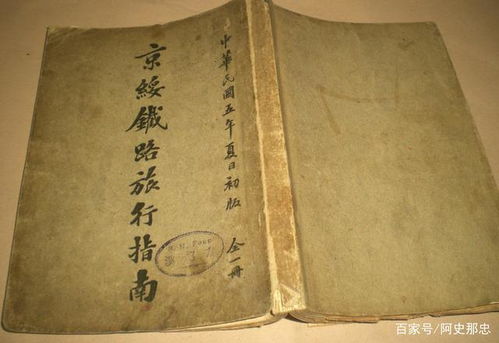 中華民國五年夏日初版 全一冊
京綏鐵路旅行指南
百家号/阿史那忠